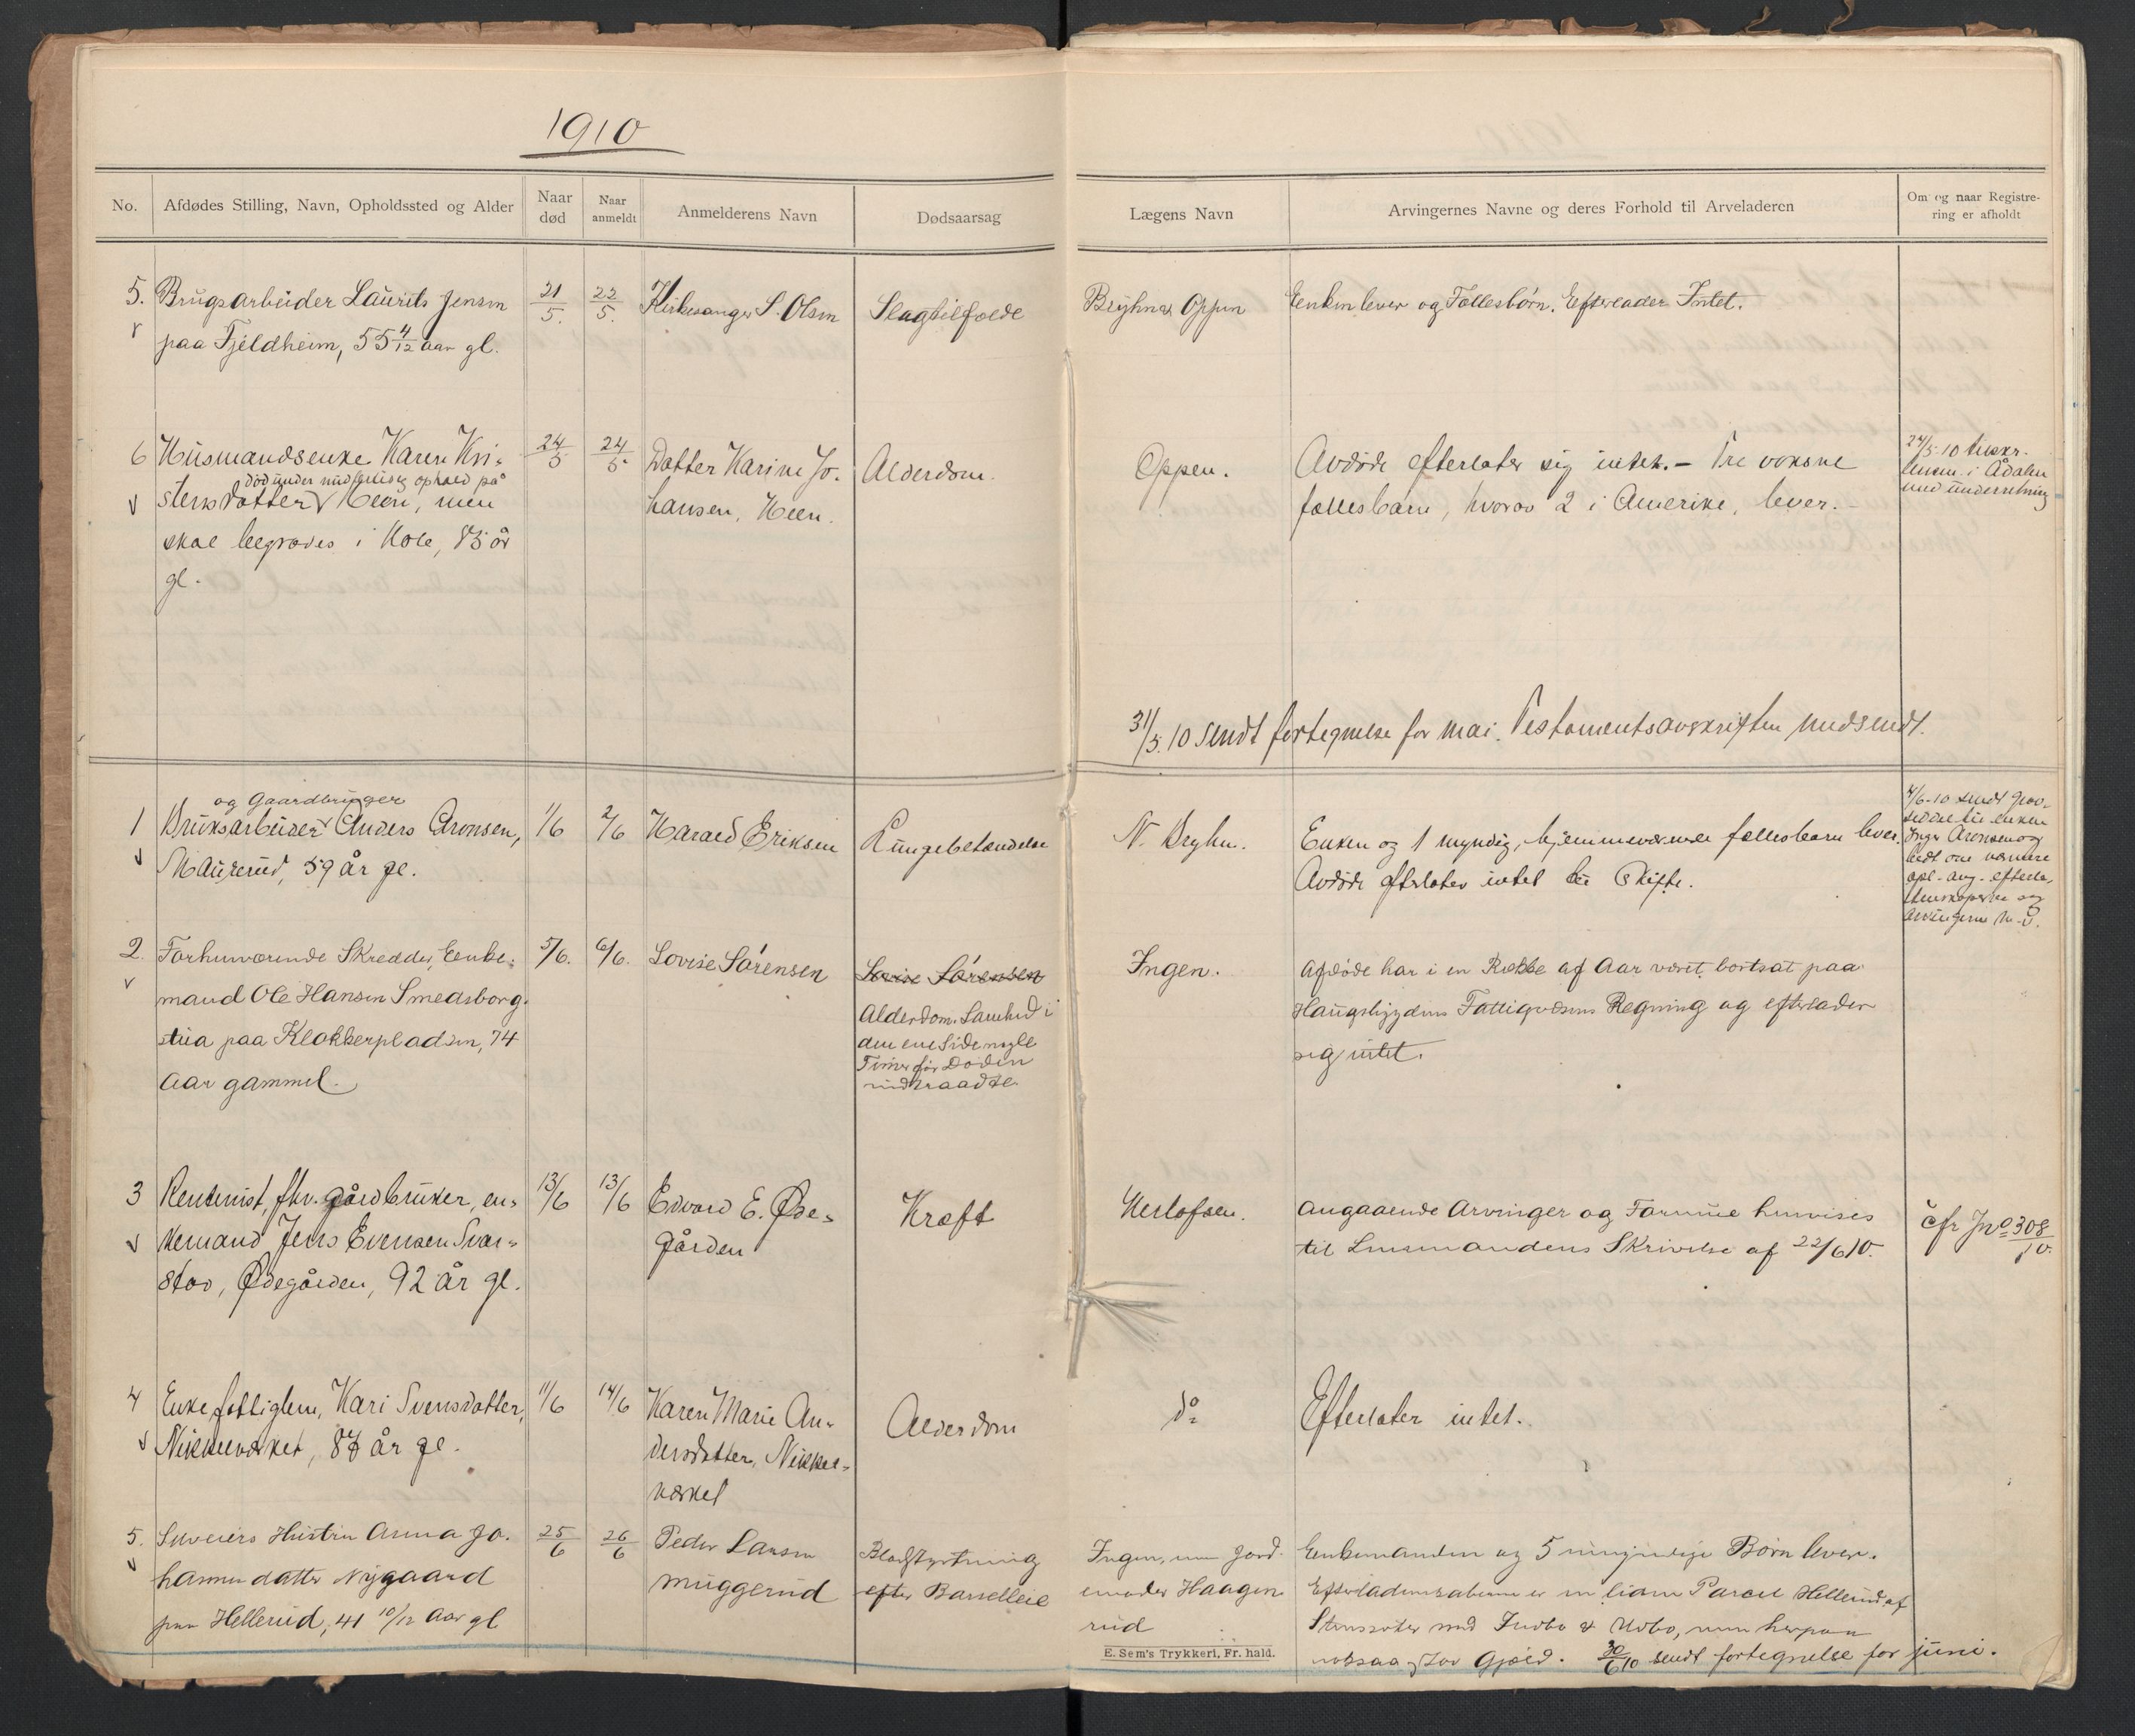 1910
No.
Afdødes Stilling, Navn, Opholdssted og Alder
Naar død
Naar anmeldt
Anmelderens Navn
Dødsaarsag
Lægens Navn
Arvingernes Navne og deres Forhold til Arveladeren
Om og naar Registre-
ring er afholdt
5. Brugsarbeider Laurits Jensen
paa Fjeldheim, 55 4/12 aar gl.
21/5.
22/5.
Kirkesanger S. Olsen
Slagtilfælde
Bryhn & Oppen
Enken lever og Fællesbørn. Efterlader Intet.
6 Husmandsenke Karen Kri-
død under midlertidig ophold på
stensdatter Heen, men
skal begraves i Hole, 83 år
gl.
24/5
24/5
Datter Karine Jo-
hansen, Heen.
Alderdom.
Oppen.
Avdøde efterlater sig intet. - Tre voksne
fællesbarn, hvorav 2 i Amerika, lever. -
24/5.10 tilskr.
lensm. i Ådalen
med underretning
31/5.10 sendt fortegnelse for mai. Testamentsavskriften medsendt.
og Gaardbruger
1 Bruksarbeider Anders Aronsen,
Maurerud, 59 år gl.
1/6
2/6
Harald Eriksen
Lungebetændelse
N. Bryhn.
Enken og 1 myndig, hjemmeværende fællesbarn lever.
Avdøde efterlater intet til Skifte.
4/6-10 sendt
til enken
Inger Aronsen og
bedt om nærmere
opl. ang. efterla-
tenskaperne og
arvingerne m.v.
2. Forhenværende Skredder, Enke-
mand Ole Hansen Smedsborg-
stua paa Klokkerpladsen, 74
Aar gammel.
5/6.
6/6.
Lovise Sørensen
Lovise Sørensen
Alderdom. Lamhed i
den ene Side nogle
Timer før Døden
indtraadte.
Ingen.
Afdøde har i en Række af Aar været bortsat paa
Haugsbygdens Fattigvæsens Regning og efterlader
sig intet.
3 Rentenist, fhv. gårdbruker, en-
kemand Jens Evensen Svar-
stad, Ødegården, 92 år gl.
13/6
13/6
Edvard E. Øde-
gården
Kræft
Herlofsen.
Angaaende Arvinger og Formue henvises
til Lensmandens Skrivelse af 22/6 10.
cfr Jno 308/10.
4 Enke, fattiglem, Kari Svensdatter,
Nikkelværket, 87 år gl.
11/6
14/6
Karen Marie An-
dersdatter, Nikkel-
værket
Alderdom
do
Efterlater intet.
5. Selveiers Hustru Anna Jo-
hannesdatter Nygaard
paa Hellerud, 41 10/12 Aar gl
25/6
26/6
Peder Larsen
Muggerud
Blodstyrtning
efter Barselleie
Ingen, men Jord-
emoder Haagen-
rud
Enkemanden og 5 umyndige Børn lever.
Efterladenskaberne er en liden Parcel Hellerud af
Stenssæter med Indbo & Udbo, men herpaa
ogsaa Gjæld. 30/6 10 sendt fortegnelse for juni.
E. Sem's Trykkeri, Fr. hald.